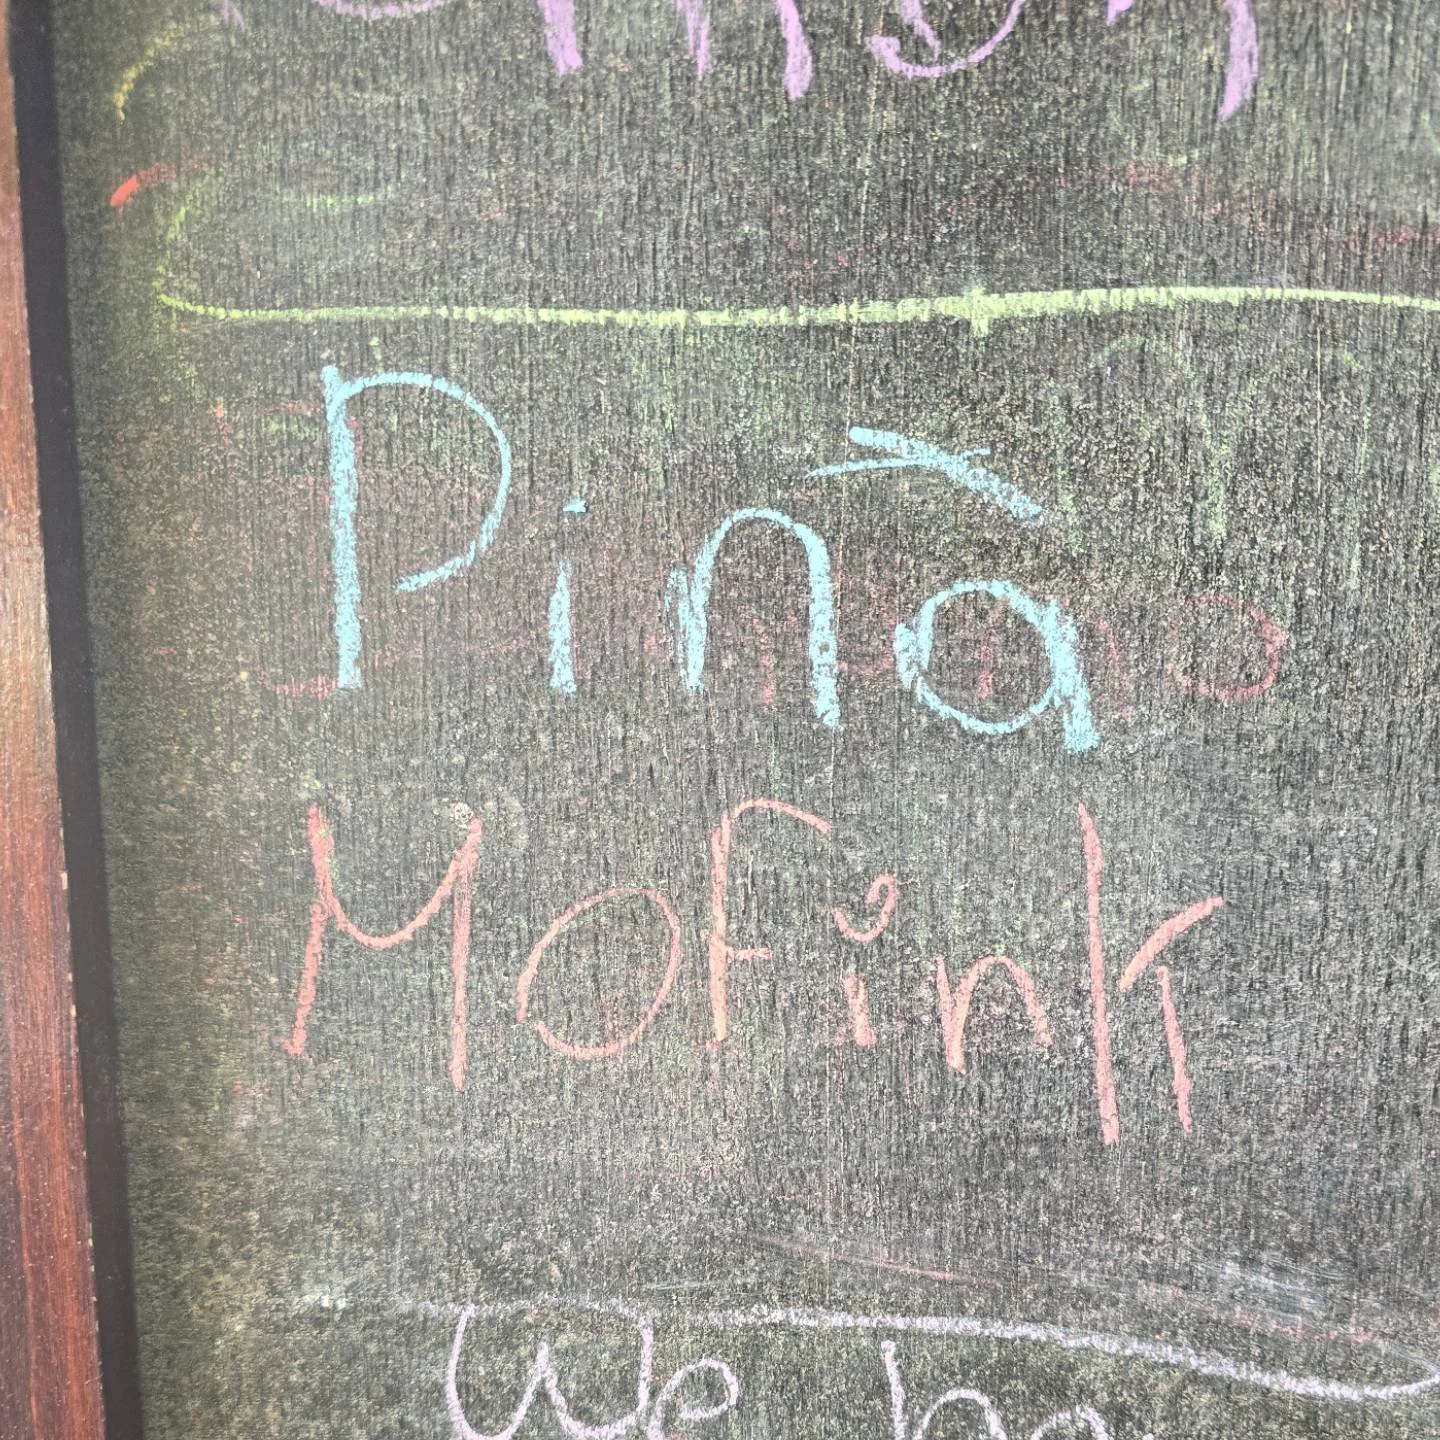 Pinà
Mofink
We ha